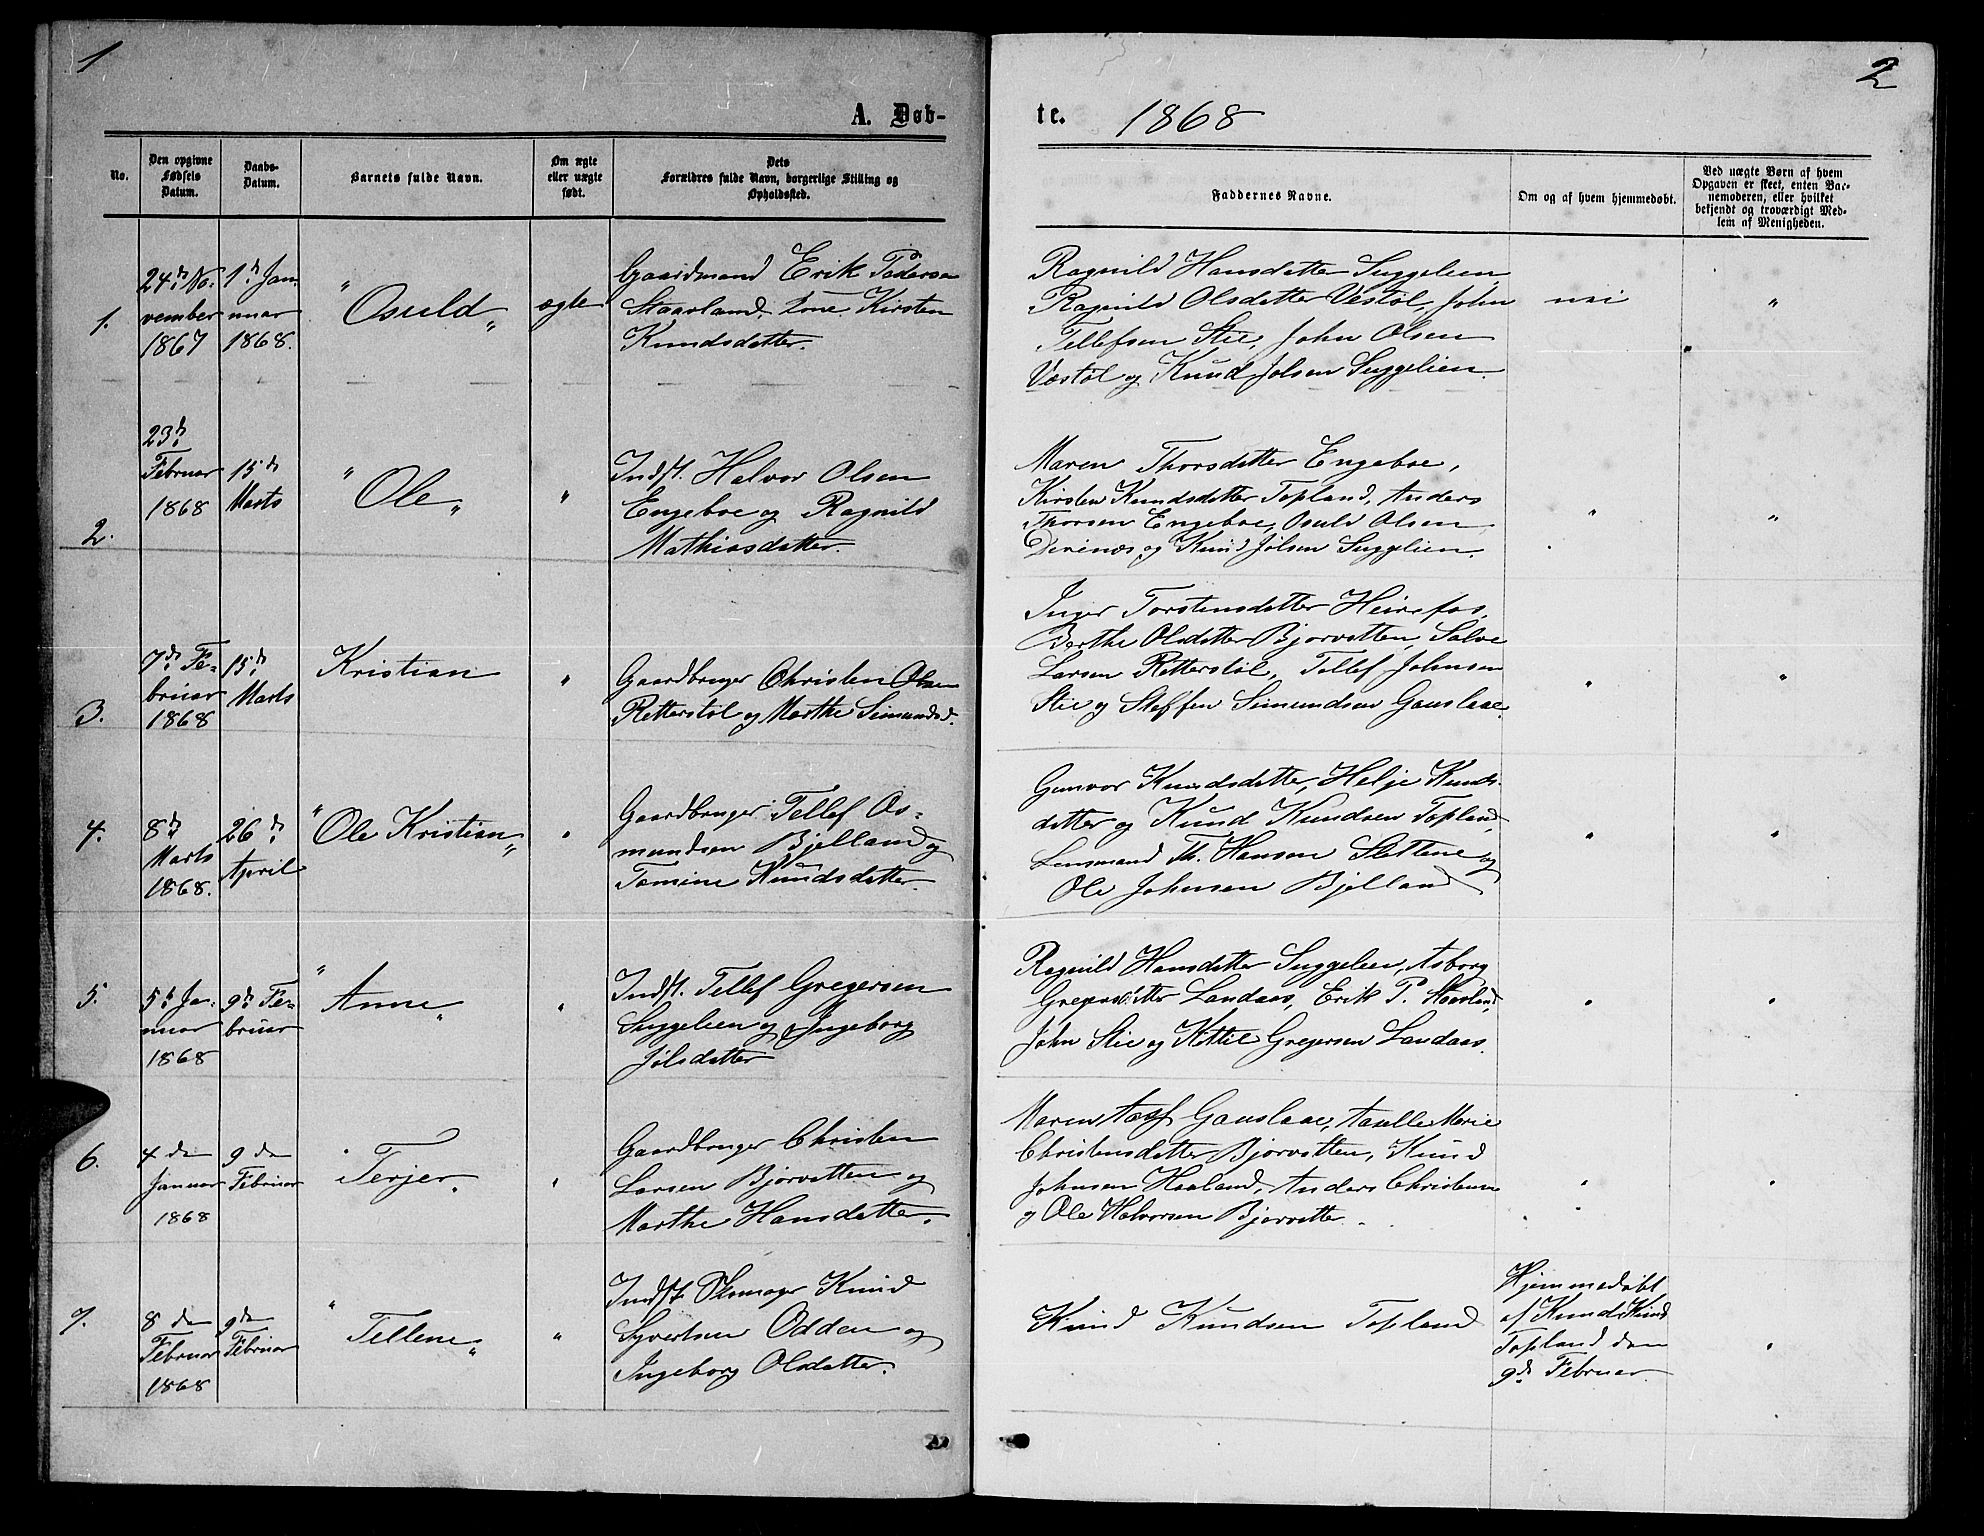 1
A. Døb-
No.
Den opgivne
Fødsels
Datum.
Daabs-
Datum.
Barnets fulde Navn.
Om ægte
eller uægte
født.
Dets
Forældres fulde Navn, borgerlige Stilling og
Opholdssted.
1.
24de No-
vember
1867
1de Jan-
nuar
1868.
" Osuld "
ægte
Gaardmand Erik Pedersen
Staarland, Kone Kirsten
Knudsdatter.
2.
23de
Februar
1868
15de
Marts
" Ole "
"
Indst. Halvor Olsen
Engeboe og Ragnild
Mathiasdatter.
3.
7de Fe-
bruar
1868
15de
Marts
Kristian
"
Gaardbruger Christen Olsen
Retterstøl og Marthe Simundsd.
4.
8de
Marts
1868.
26de
April
" Ole Kristian "
"
Gaardbruger Tellef Os-
mundsen Bjelland og
Tomine Knudsdatter.
5.
5te Ja-
nuar
1868
9de Fe-
bruar
" Anne "
"
Indst. Tellef Gregersen
Suggelien og Ingeborg
Jølsdatter
6.
4de
Januar
1868
9de
Februar
" Terjer "
"
Gaardbruger Christen
Larsen Bjorvatten og
Marthe Hansdatter.
7.
8de
Februar
1868
9de
Februar
" Tellene "
"
Indst. Skomager Knud
Syvertsen Odden og
Ingeborg Olsdatter.
2
te. 1868
Faddernes Navne.
Om og af hvem hjemmedøbt.
Ved uægte Børn af hvem
Opgaven er skeet, enten Bar-
nemoderen, eller hvilket
bekjendt og troværdigt Med-
lem af Menigheden.
Ragnild Hansdatter Suggelien
Ragnild Olsdatter Vestøl, John
Tellefsen Stie, John Olsen
Vestøl og Knud Jolsen Suggelien.
nei
"
Maren Thorsdatter Engeboe,
Kirsten Knudsdatter Topland, Anders
Thorsen Engeboe, Osuld Olsen
Dirinæs og Knud Jølsen Suggelien.
"
"
Inger Torstensdatter Heirefos,
Berthe Olsdatter Bjorvatten, Salve
Larsen Retterstøl, Tellef Johnsen
Stie og Steffen Simundsen Gauslaae.
"
"
Gunvor Knudsdatter, Helje Knuds-
datter og Knud Knudsen Topland,
Lensmand Th. Hansen Slettene og
Ole Johnsen Bjelland
"
"
Ragnild Hansdatter Suggelien, Asborg
Gregersdatter Landaas, Erik P. Staarland,
John Stie og Kittil Gregersen Landaas.
"
"
Maren Gauslaae, Marie
Christensdatter Bjorvatten, Knud
Johnsen Haaland, Anders Christensen
og Ole Halvorsen Bjorvatten.
"
"
Knud Knudsen Topland
Hjemmedøbt
af Knud Knud
Topland den
9de Februar.
"